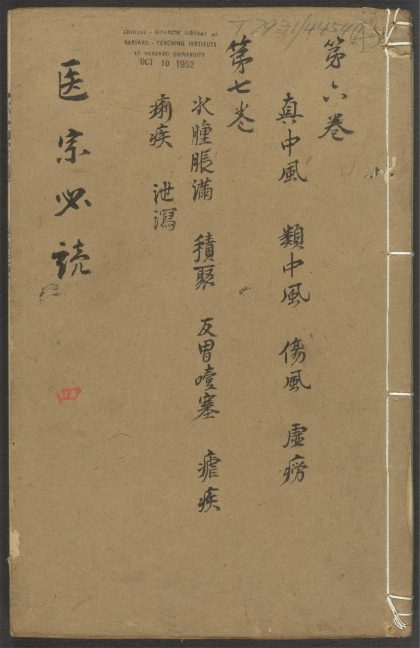 T 7931/4454(4)
CHINESE-JAPANESE LIBRARY OF
HARVARD-YENCHING INSTITUTE
AT HARVARD UNIVERSITY
OCT 10 1952
第六卷
真中風 類中風 傷風 虛癆
第七卷
水腫脹滿 積聚 反胃噎塞 瘧疾
痢疾 泄瀉
医宗必読
四